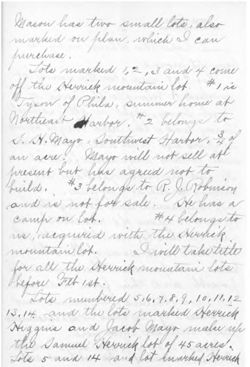 Mason has two small lots, also
marked on plan, which I can
purchase.
Lots marked 1, 2, 3 and 4 come
off the Herrick mountain lot. #1 is
Tyson of Phila, summer home at
Northeast Harbor. #2 belongs to
S. H. Mayo, Southwest Harbor, 3/4 of
an acre. Mayo will not sell at
present but has agreed not to
build. #3 belongs to R. J. Robinson
and is not for sale. He has a
camp on lot. #4 belongs to
us, acquired with the Herrick
mountain lot. I will take title
for all the Herrick mountain lots
before Feb 1st.
Lots numbered 5, 6, 7, 8, 9, 10, 11, 12
13, 14, and the lots marked Herrick
Higgins and Jacob Mayo make up
the Samuel Herrick lot of 45 acres.
Lots 5 and 14 and lot marked Herrick